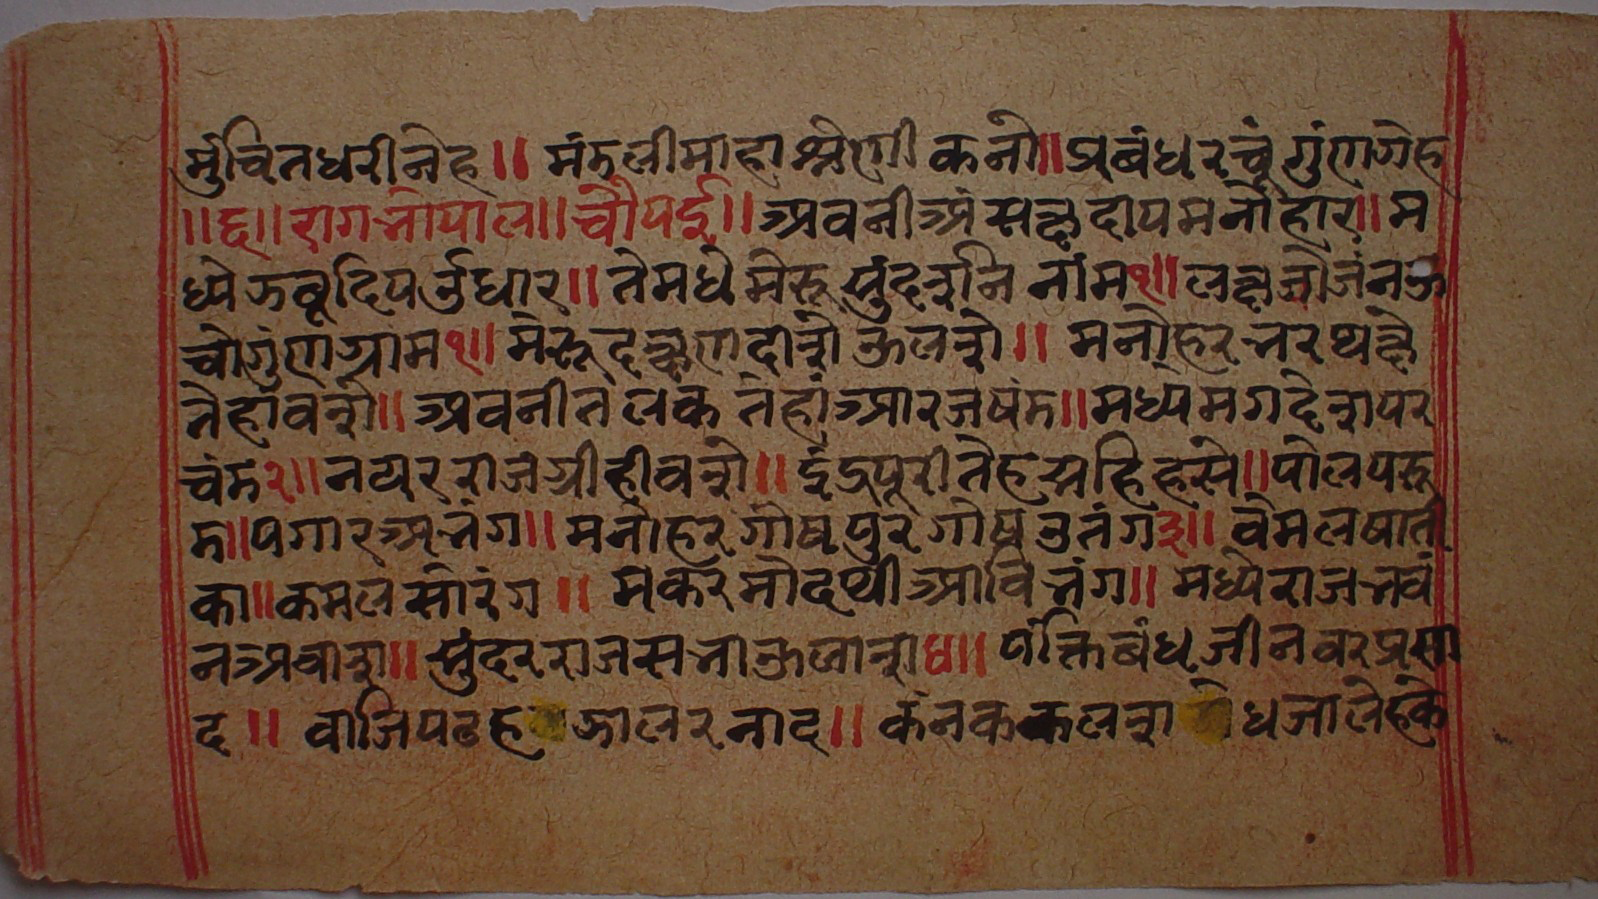 र्मुचितधरीनेह॥ मंडलीमाहाश्रेणी कनो॥ प्रबंधरचुं गुंणगेह
॥ढा॥ रागगोपाल॥ चौपई॥ अवनीअंसष्ट दीपमनोहार॥ म
ध्येजंबूदिप धार॥ तेमधेमेरू सुंदर्शनि नांम१॥ लक्षजोजंनऊ
चोगुंणग्राम१॥ मेरू दक्षणदीशेऊलशे॥ मनोहर भरथक्षे
तेहांवशे॥ अवनीतलकतेहांआरजषंड॥ मध्यमगदेशपर
चंड२॥ नयरराजग्रीहीवशे॥ ईंद्रपूरीतेहअहिहसे॥ पोलपरु
ड॥ पगारअभंग॥ मनोहरगोषपुरगोषउतंग३॥ वेमलषाती
का॥ कमलसोरंग॥ मकरमोदथीआविभंग॥ मध्येराजभवं
नअवाश॥ सुंदरराजसभाऊलाश४॥ पंक्तिबंधजीनवरप्रसा
द॥ वाजिपढह झालरनाद॥ कंनककलश धजालेहके